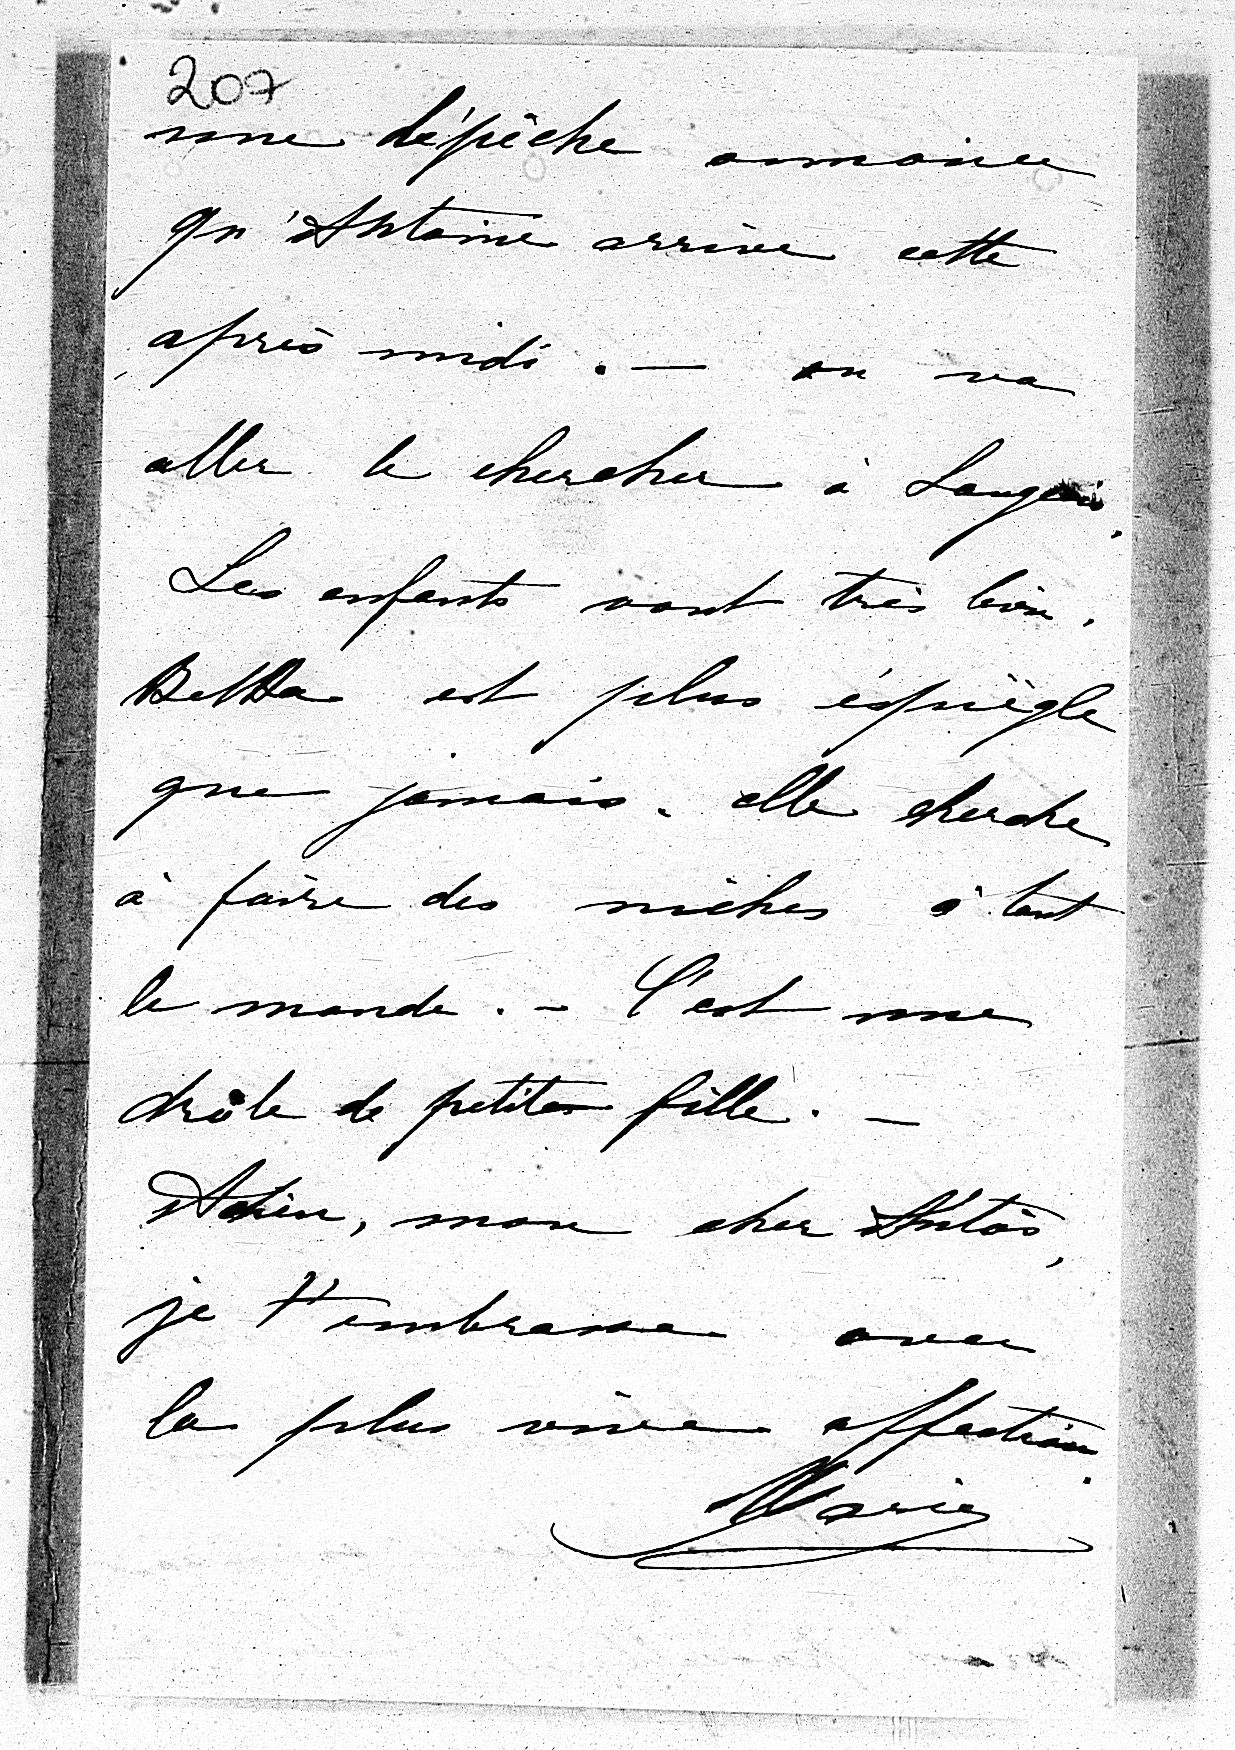 207
une dépêche annonce
qu'Antoine arrive cette
après midi. — on va
aller le chercher à
Les enfants vont très bien.
est plus éspiègle
que jamais. elle cherche
à faire des niches à tout
le monde. - C'est une
drôle de petite fille. —
Adieu, mon cher Antos,
je t'embrasse avec
la plus vive affection.
Marie